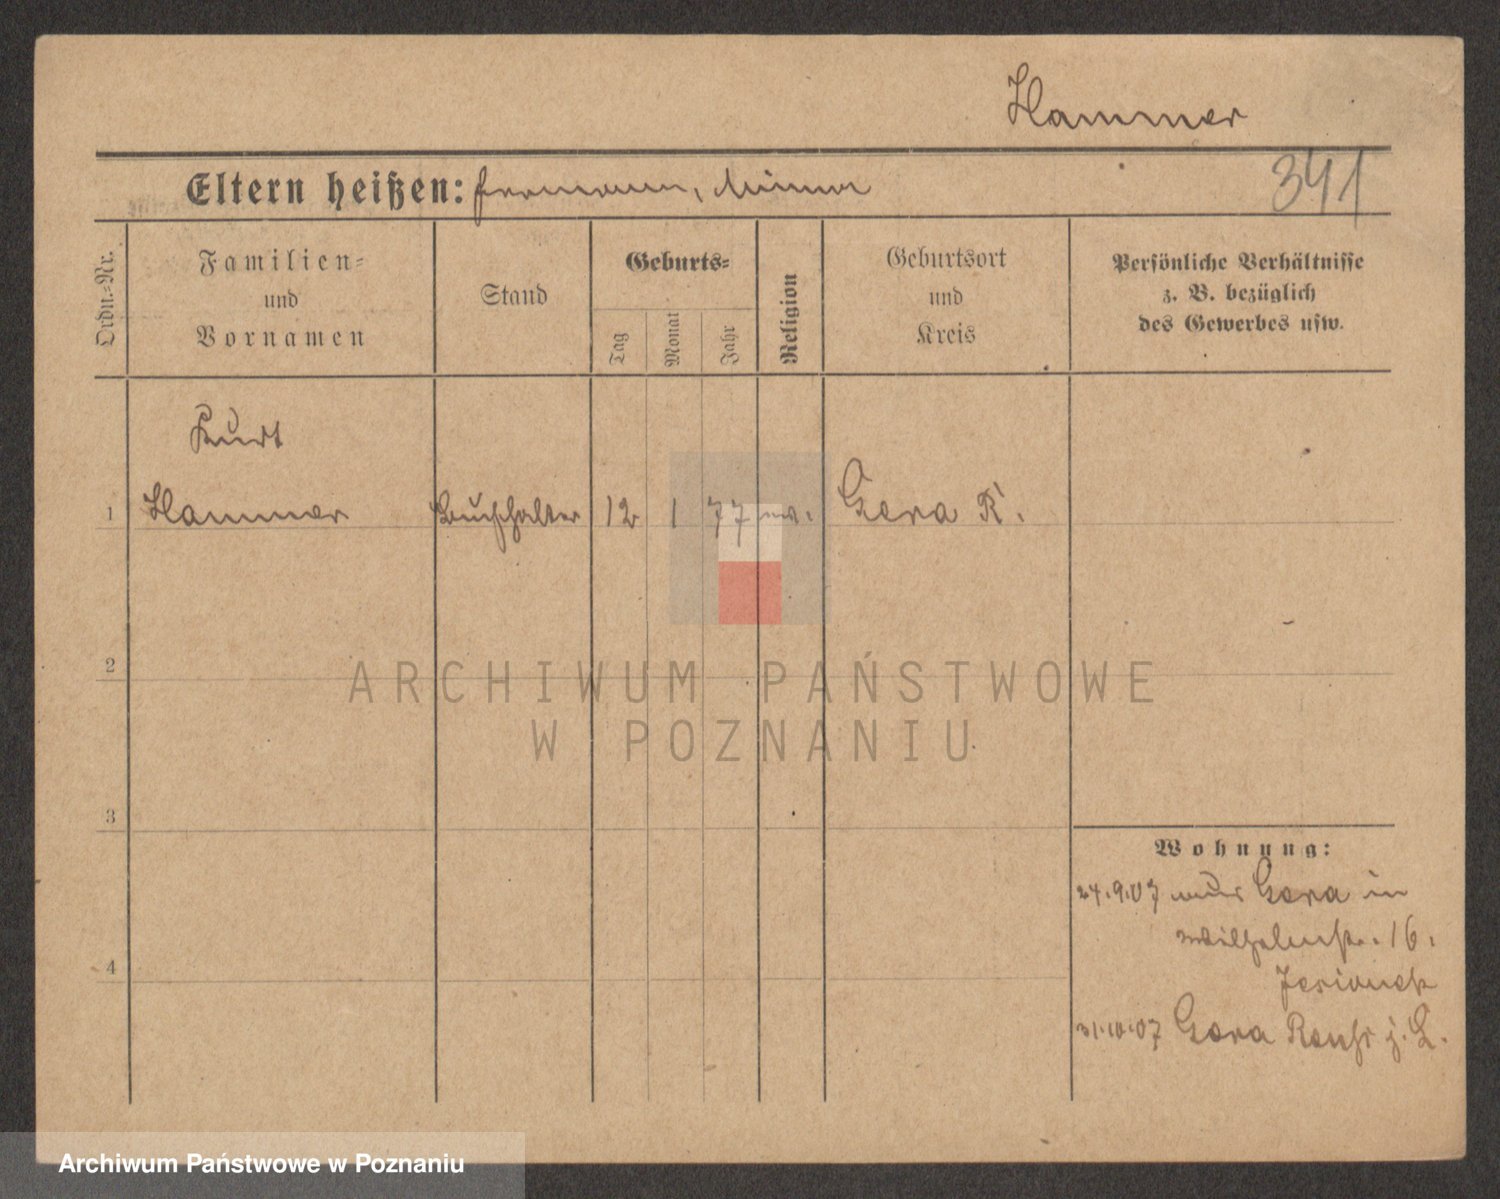 Hammer
Eltern heißen: Hermann, Minna
341
Ordn.-Nr.
Familien-
und
Vornamen
Stand
Geburts-
Tag
Monat
Jahr
Religion
Geburtsort
und
Kreis
Persönliche Verhältnisse
z. B. bezüglich
des Gewerbes usw.
Kurt
1 Hammer Buchhalter 12 1 77 ev. Gera R.
2
ARCHIWUM PAŃSTWOWE
W POZNANIU
3
4
Wohnung:
24.9.07 aus Gera in
Wilhelmstr. 16.
31.10.07 Gera Reuß j. L.
Archiwum Państwowe w Poznaniu